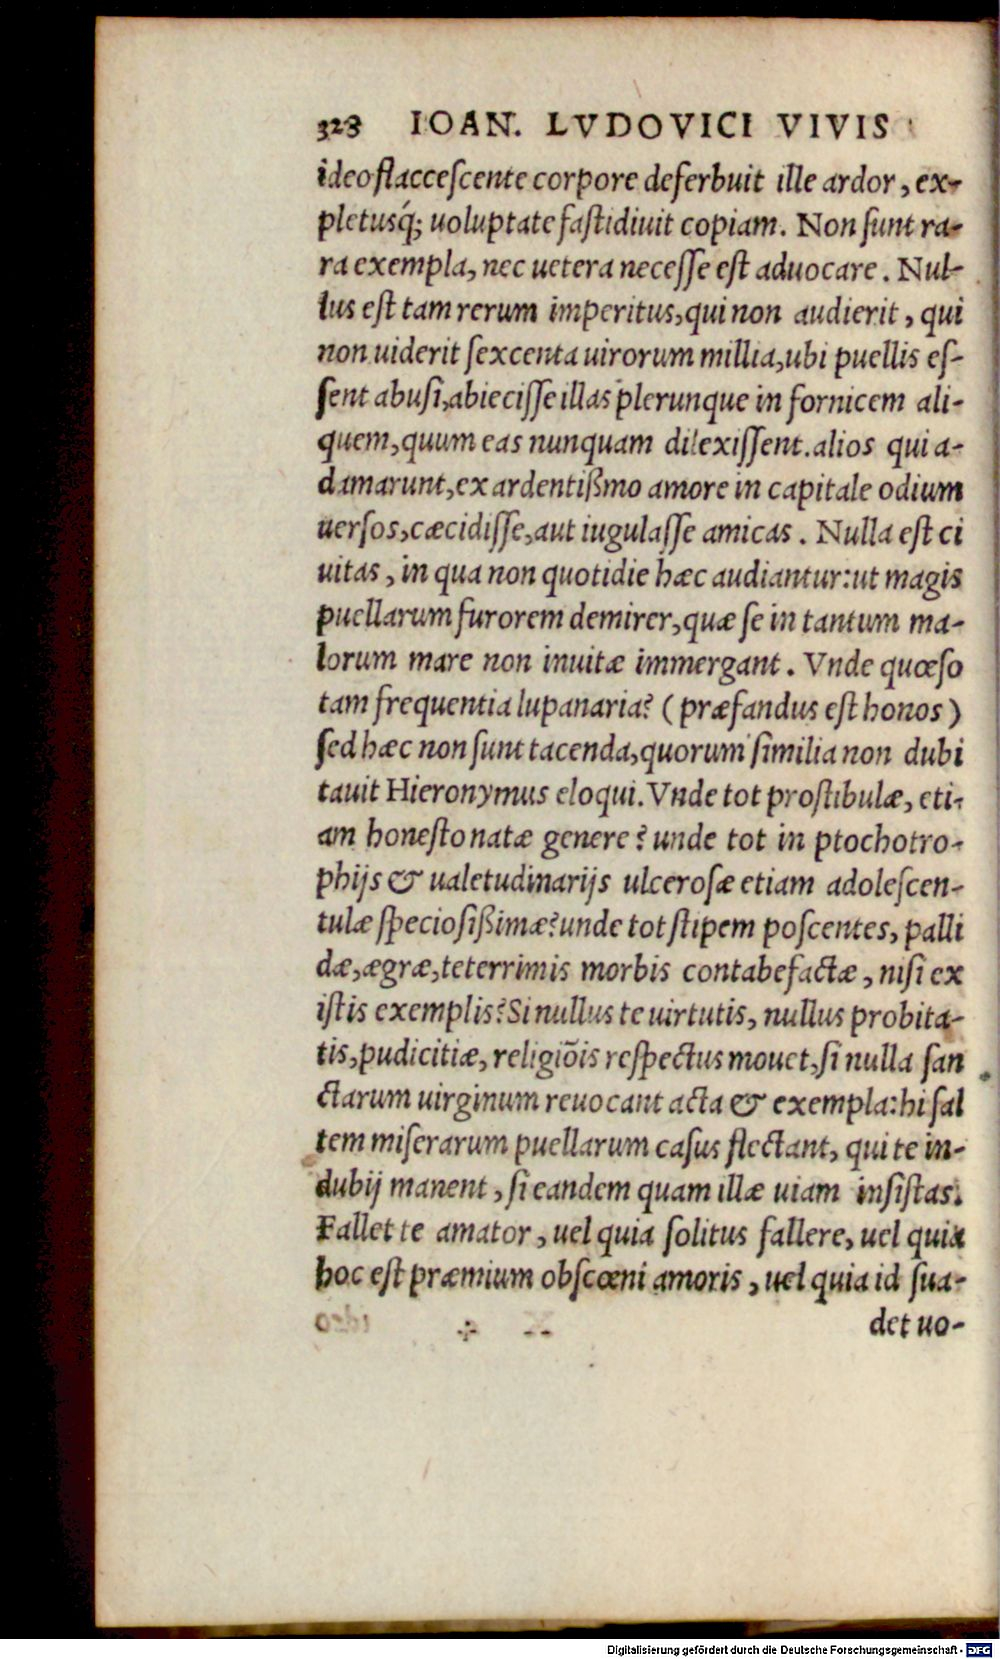 328 IOAN. LVDOVICI VIVIS
ideo flaccescente corpore deferbuit ille ardor, ex-
pletusq́; uoluptate fastidiuit copiam. Non sunt ra-
ra exempla, nec uetera necesse est aduocare. Nul-
lus est tam rerum imperitus, qui non audierit, qui
non uiderit sexcenta uirorum millia, ubi puellis es-
sent abusi, abiecisse illas plerunque in fornicem ali-
quem, quum eas nunquam dilexissent. alios qui a-
damarunt, ex ardentißmo amore in capitale odium
uersos, cæcidisse, aut iugulasse amicas. Nulla est ci
uitas, in qua non quotidie hæc audiantur: ut magis
puellarum furorem demirer, quæ se in tantum ma-
lorum mare non inuitæ immergant. Vnde quœso
tam frequentia lupanaria? (præfandus est honos)
sed hæc non sunt tacenda, quorum similia non dubi
tauit Hieronymus eloqui. Vnde tot prostibulæ, eti-
am honesto natæ genere? unde tot in ptochotro-
phijs & ualetudinarijs ulcerosæ etiam adolescen-
tulæ speciosißimæ? unde tot stipem poscentes, palli
dæ, ægræ, teterrimis morbis contabefactæ, nisi ex
istis exemplis? Si nullus te uirtutis, nullus probita-
tis, pudicitiæ, religiōis respectus mouet, si nulla san
ctarum uirginum reuocant acta & exempla: hi sal
tem miserarum puellarum casus flectant, qui te in-
dubij manent, si eandem quam illæ uiam insistas.
Fallet te amator, uel quia solitus fallere, uel quia
hoc est præmium obscœni amoris, uel quia id sua-
det uo-
Digitalisierung gefördert durch die Deutsche Forschungsgemeinschaft - DFG